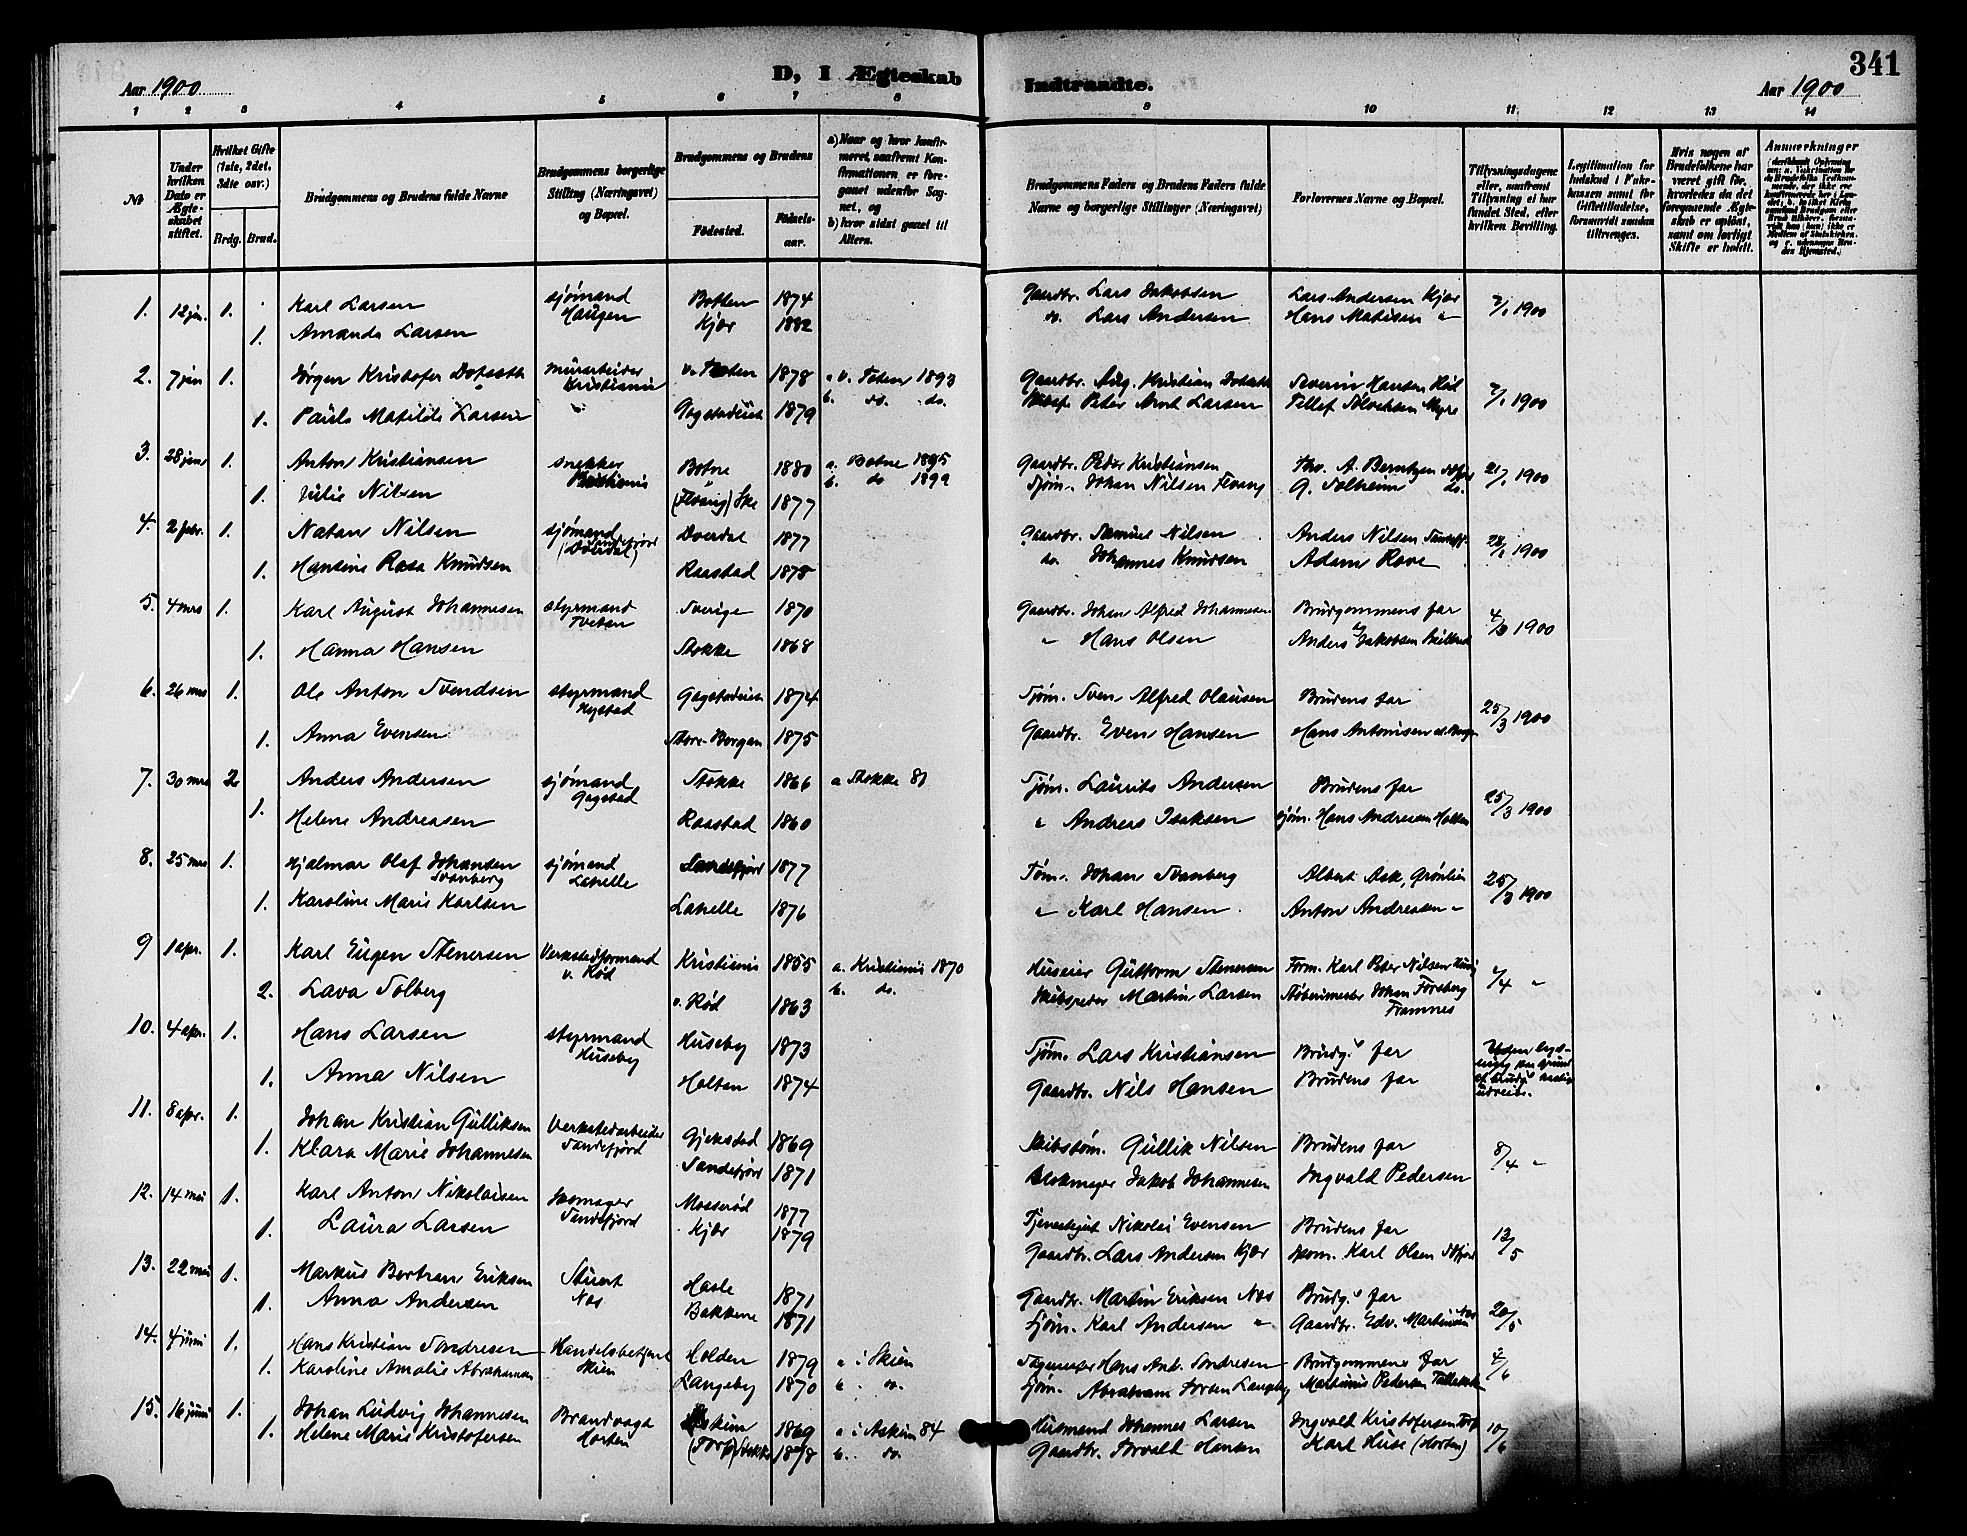 341
Aar 1900
D, I Ægteskab Indtraadte.
Aar 1900
1 2 3 4 5 6 7 8 9 10 11 12 13 14
No
Under hvilken Dato er Ægteskabet stiftet.
Hvilket Gifte (1ste, 2det, 3die osv.)
Brdg. Brud.
Brudgommens og Brudens fulde Navne
Brudgommens borgerlige Stilling (Næringsvei) og Bopæl.
Brudgommens og Brudens
Fødested. Fødselsaar.
a) Naar og hvor konfirmeret, saafremt Konfirmationen er foregaaet udenfor Sognet, og
b) hvor sidst gaaet til Alters.
Brudgommens Faders og Brudens Faders fulde Navne og borgerlige Stillinger (Næringsvei)
Forlovernes Navne og Bopæl.
Tillysningsdagene eller, saafremt Tillysning ei har fundet Sted, efter hvilken Bevilling.
Hvis nogen af Brudefolkene har været gift før, hvorledes da det foregaaende Ægteskab er opløst, samt om lovligt Skifte er holdt.
Anmærkninger
1. 12 jan. 1. Karl Larsen sjømand Haugen 1874 Gaardbr. Lars Jakobsen Lars Andersen Kjær 7/1 1900
1. Amanda Larsen Kjær 1882 do. Lars Andersen Hans Matisen "
2. 7 jan 1. Jørgen Kristofer murarbeider Kristiania v. Toten 1878 a v. Toten 1893 Gaardbr. Aug. Kristian Severin Hansen 7/1 1900
b. do. do.
1. Paula Matilde Larsen " Gogstadeiet 1879 Peter Arnt Larsen Tellef
3. 28 jan 1. Anton Kristiansen snekker Kristiania Botne 1880 a. Botne 1895 Gaardbr. Peder Kristiansen A. Berntzen 21/1 1900
b. do 1899
1. Julie Nilsen 1877 Sjøm. Johan Nilsen G. Solheim do.
4. 2 febr. 1. Natan Nilsen sjømand Sandefjord Overdal 1877 Gaardbr. Samuel Nilsen Anders Nilsen 28/1 1900
1. Hansine Rosa Knudsen Raastad 1875 do. Johannes Knudsen Adam Rove
5. 4 mrs 1. Karl August Johannesen styrmand Tveten Sverige 1870 Gaardbr. Johan Alfred Johannesen Brudgommens far 4/3 1900
1. Hanna Hansen Stokke 1868 " Hans Olsen Anders Jakobsen
6. 26 mrs 1. Ole Anton Svendsen styrmand Nystad Gogstadeiet 1874 Sjøm. Sven Alfred Olausen Brudens far 25/3 1900
1. Anna Evensen Store-Bergan 1875 Gaardbr. Even Hansen Hans Antonisen
7. 30 mrs 2 Anders Andersen sjømand Gogstad Stokke 1866 a Stokke 81 Sjøm. Laurits Andersen Brudens far 25/3 1900
1. Helene Andreasen Raastad 1860 " Andreas Isaksen sjøm. Hans Andresen Holten
8. 25 mrs 1. Hjalmar Olaf Johansen Svanberg sjømand Lahelle Sandefjord 1877 Tøm. Johan Svanberg Albert Ask, Grønlien 25/3 1900
1. Karoline Marie Karlsen Lahelle 1876 " Karl Hansen Anton Andreasen "
9 1 apr. 1. Karl Eugen Stenersen Verkstedformand v. Rød Kristiania 1855 a. Kristiania 1870 Huseier Guttorm Stenersen Form. Karl Peter Nilsen 1/4 "
b. do.
2. Lava Solberg v. Rød 1863 Martin Larsen Støberimester Johan Forsberg Framnes
10. 4 apr. 1. Hans Larsen styrmand Huseby Huseby 1873 Sjøm. Lars Kristiansen Brudg.s far Uden lysning paa grund af brudg.s hastige udreise.
1. Anna Nilsen Holten 1874 Gaardbr. Nils Hansen Brudens far
11. 8 apr. 1. Johan Kristian Gulliksen Verkstedarbeider Sandefjord Gjekstad 1869 Skibstøm. Gullik Nilsen Brudens far 8/4 "
1. Klara Marie Johannesen Sandefjord 1871 Blokmager Jakob Johannesen Ingvald Pedersen
12. 14 mai 1. Karl Anton Nikolaisen Skomager Sandefjord Mosserød 1877 Tjenestegut Nikolai Evensen Brudens far 13/5
1. Laura Larsen Kjær 1879 Gaardbr. Lars Andersen Kjær skom. Karl Olsen
13. 22 mai 1. Markus Bertran Eriksen Stuert Nes Hasle 1871 Gaardbr. Martin Eriksen Nes Brudg.s far 20/5
1. Anna Andersen Bakkene 1871 Sjøm. Karl Andersen " Gaardbr. Edv. Martinsen Nes
14. 4 juni 1. Hans Kristian Sondresen Handelsbetjent Skien Holden 1879 a i Skien Hans And. Sondresen Brudgommens far 4/6
1. Karoline Amalie Abrahamsen Langeby 1870 b. do. Sjøm. Abraham Langeby Martinius Pedersen
15. 16 juni 1. Johan Ludvig Johannesen Brandvagt Horten Askim 1869 a i Askim 84 Husmand Johannes Larsen Ingvald Kristofersen Torp 10/6
1. Helene Marie Kristofersen (Torp) Stokke 1878 b. do. Gaardbr. Torvald Hansen Karl Huse (Horten)